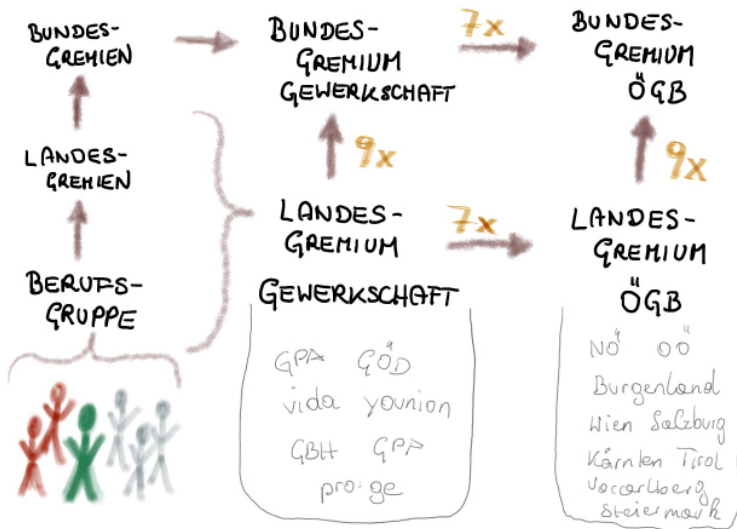 BUNDES-
GREMIEN
LANDES-
GREMIEN
BERUFS-
GRUPPE
BUNDES-
GREMIUM
GEWERKSCHAFT
9x
LANDES-
GREMIUM
GEWERKSCHAFT
GPA GÖD
vida younion
GBH GPA
pro·ge
7x
7x
BUNDES-
GREMIUM
ÖGB
9x
LANDES-
GREMIUM
ÖGB
NÖ OÖ
Burgenland
Wien Salzburg
Kärnten Tirol
Vorarlberg
Steiermark